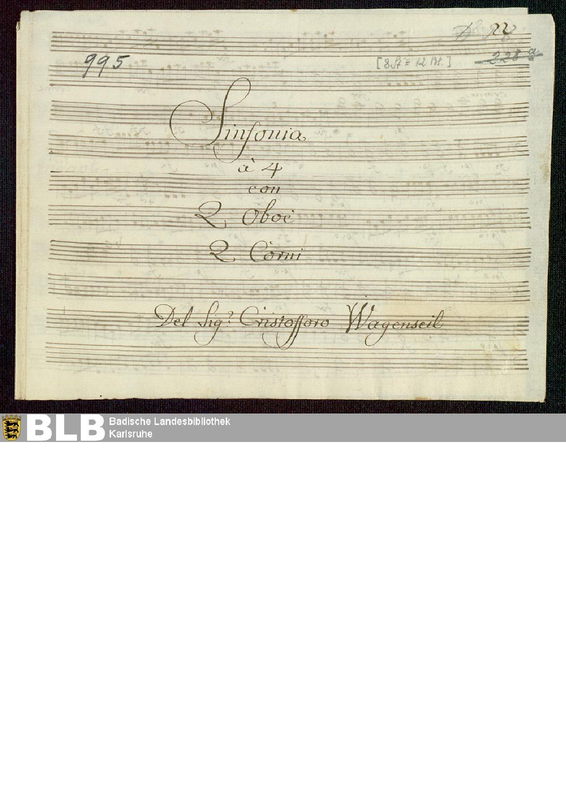 22
995
[8 St = 12 Bl.]
228 a
Sinfonia
à 4
con
2 Oboè
2 Corni
Del Sigr. Cristofforo Wagenseil
BLB Badische Landesbibliothek
Karlsruhe